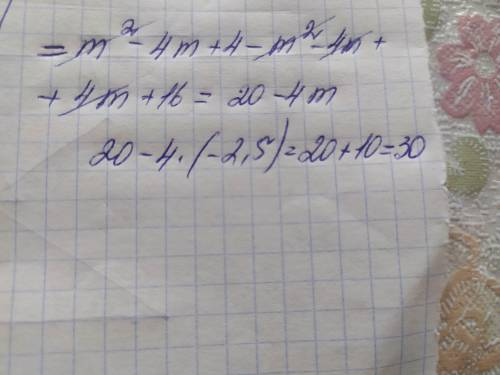 = m² - 4m + 4 - m² - 4m +
+ 4m + 16 = 20 - 4m
20 - 4 · (-2,5) = 20 + 10 = 30